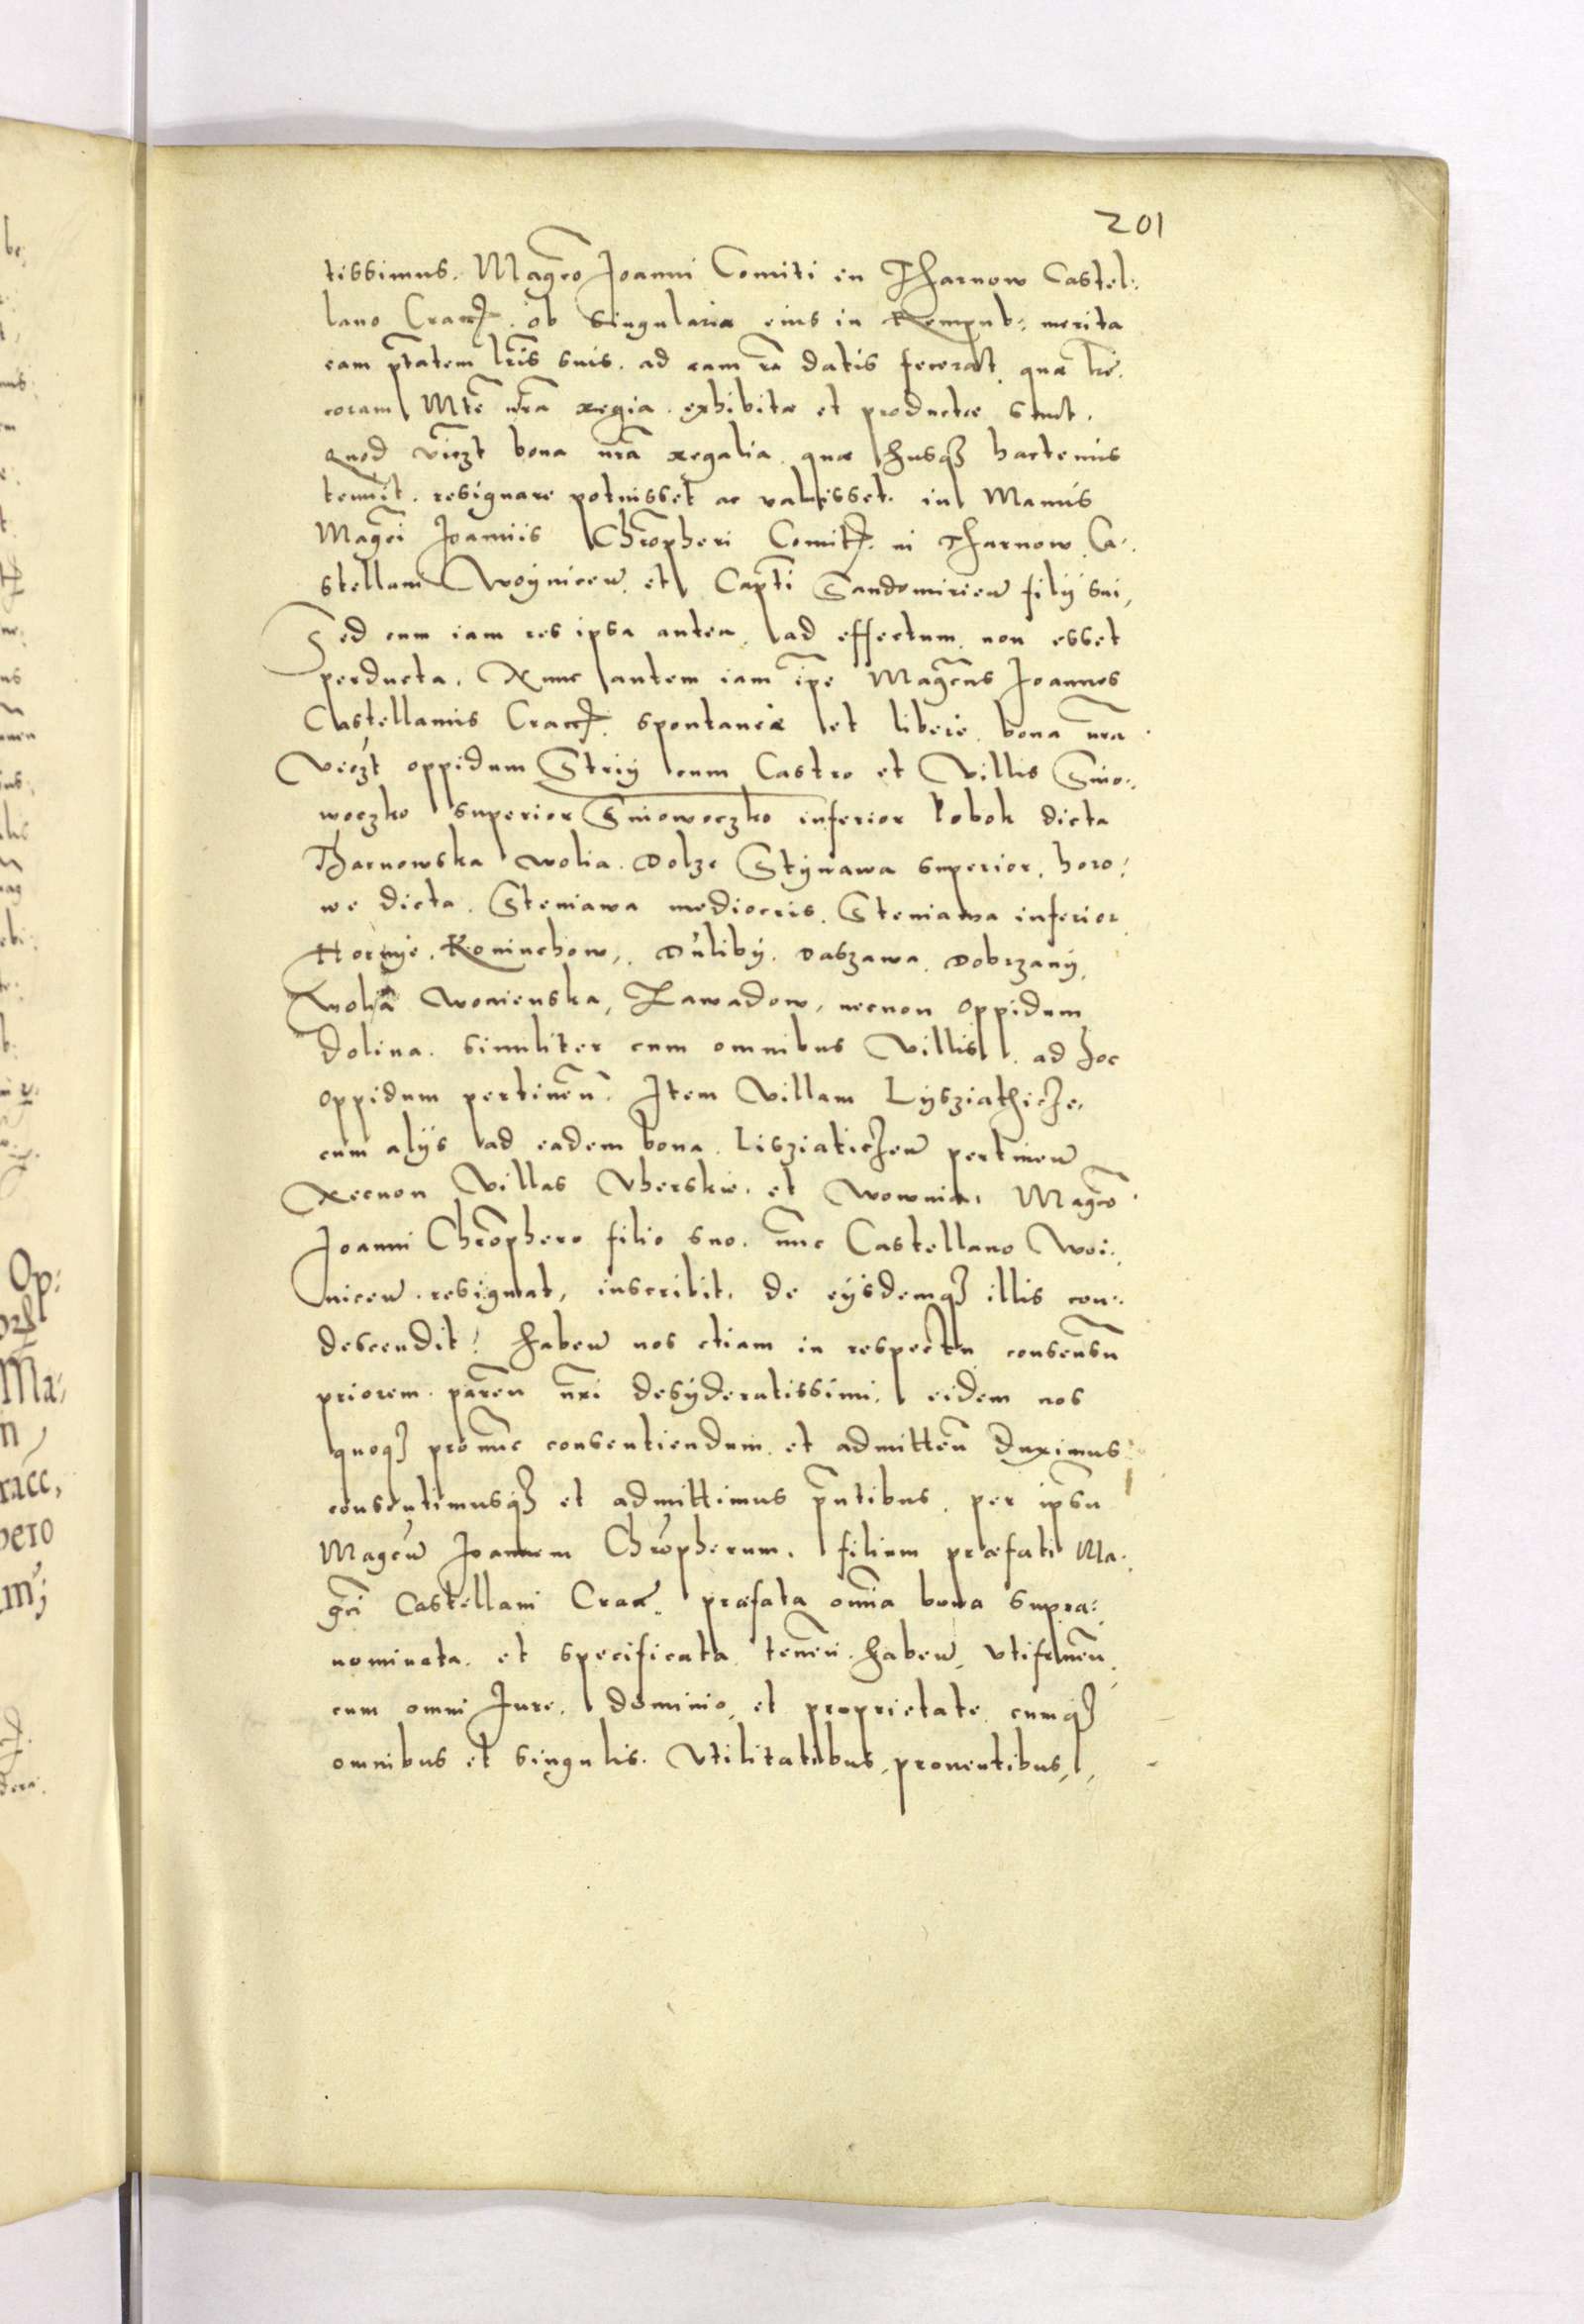 201
tissimus. Mag̃co Joanni Comiti in Tharnow Castel:
lano Cracc. ob singularia eius in Rempub: merita
eam p̃tatem lr̃is suis. ad eam rẽ datis fecerat. quæ lr̃e.
coram Mtẽ nr̃a regia. exhibitæ et productæ sunt.
Quod vicz̃t bona nr̃a regalia. quæ husqz hactenus
tenuit. resignare potuisset ac valuisset. in Manus
Mag̃ci Joannis Chr̃opheri Comit. in Tharnow Ca:
stellani Woyniceñ. et Capt̃i Sandomirieñ filÿ sui,
Sed cum iam res ipsa antea. ad effectum non esset
perducta. Nunc autem iam ip̃e Mag̃cus Joannes
Castellanus Cracc. spontanee et libere. bona nr̃a
vicz̃t oppidum Striÿ cum Castro et Villis Snio:
woczko superior Sniowoczko inferior Lobok dicta
Tharnowska wolia. Dolze Stÿnawa superior. horo:
we dicta. Steniawa mediocris. Steniawa inferior
Hornie. Koniuchow,. Dulibÿ. Daszawa. Dobrzanÿ,
Wolia Wowienska, Zawadow, necnon oppidum
Dolina. similiter cum omnibus Villis. ad hoc
oppidum pertineñ. Item Villam Lÿsziathicze,
cum alÿs ad eadem bona. Lisziaticzeñ pertineñ
Necnon Villas Vherskie. et Wownia. Mag̃co
Joanni Chr̃ophero filio suo. nũc Castellano Woi:
niceñ. resignat, inscribit. de eÿsdemqz illis con:
descendit: habeñ nos etiam in respectu consensũ
priorem. pareñ nr̃i desÿderatissimi. eidem nos
quoqz pro nũc consentiendum et admitteñ duximus
consentimusqz et admittimus p̃ntibus. per ipsũ
Magcũ Joannem Chr̃opherum. filium præfati Ma:
g̃ci Castellani Cracc. præfata om̃ia bona supra:
nominata. et specificata. teneñ. habeñ, vtifrueñ,
cum omni Jure. dominio, et proprietate. cumqz
omnibus et singulis. Vtilitatibus, prouentibus,